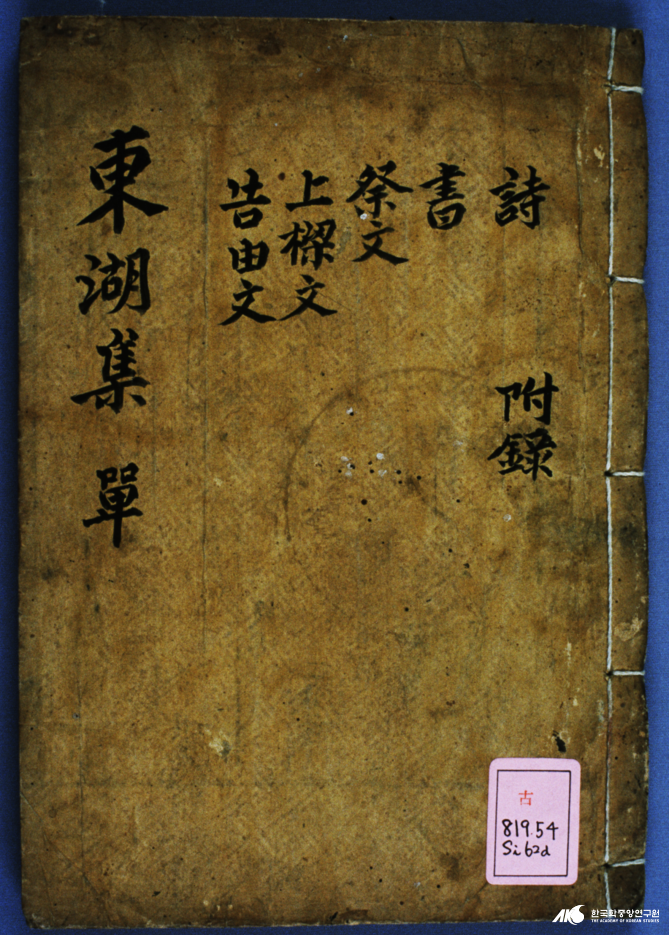 詩 附錄
書
祭文
上樑文
告由文
東湖集 單
古
819.54
Si62d
한국학중앙연구원
THE ACADEMY OF KOREAN STUDIES